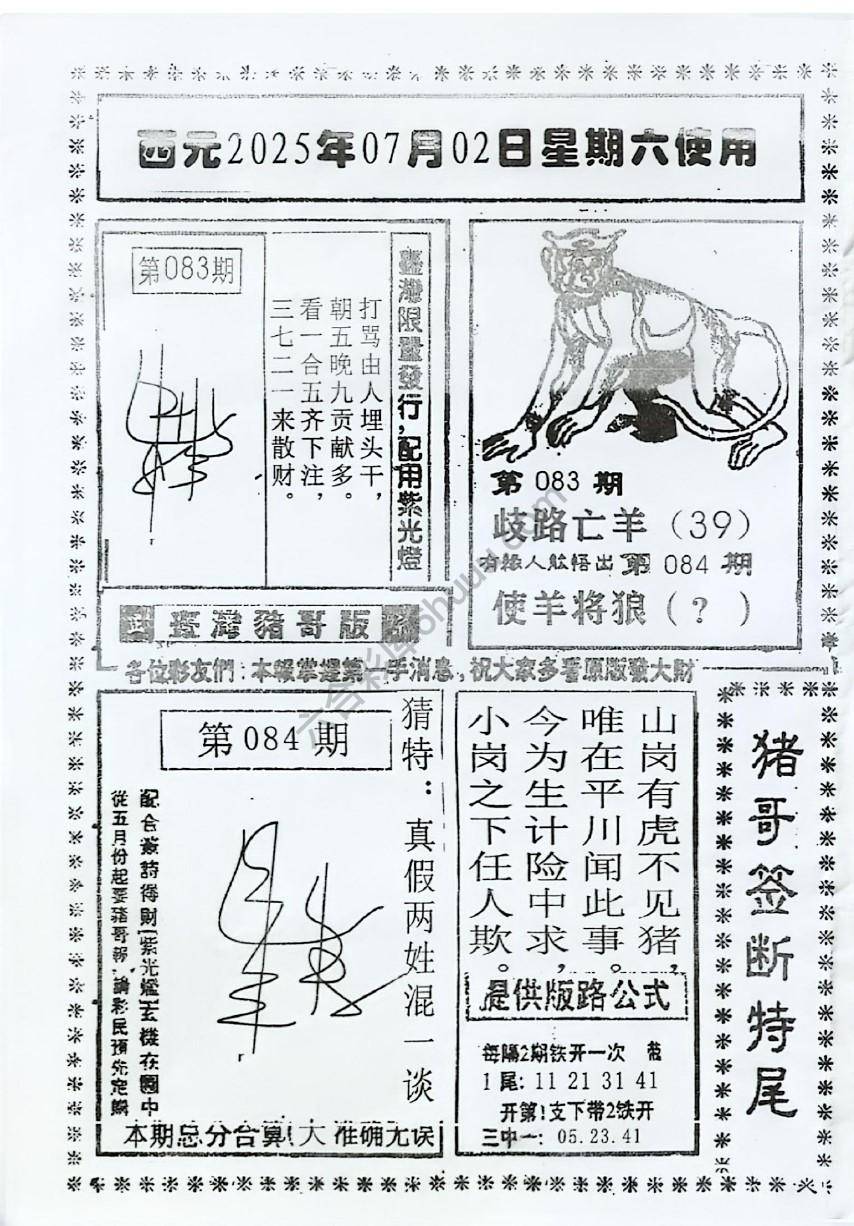 西元2025年07月02日星期六使用
第083期
臺灣限量發行，配用紫光燈
打骂由人埋头干，
朝五晚九贡献多。
看一合五齐下注，
三七二一来散财。
臺灣豬哥版
第 083 期
歧路亡羊（39）
有缘人能悟出 第 084 期
使羊将狼（？）
各位彩友們：本報掌握第一手消息，祝大家多看原版發大財
第084期
猜特：真假两姓混一谈
配合嵌詩得財[紫光燈]玄機在圖中
從五月份起要豬哥報，請彩民預先定購
本期总分合算(大)准确无误
山岗有虎不见猪，
唯在平川闻此事。
今为生计险中求，
小岗之下任人欺。
提供版路公式
每隔2期铁开一次
1尾: 11 21 31 41
开第!支下带2铁开
三中一: 05.23.41
猪哥签断特尾
六合彩库6huuu.com